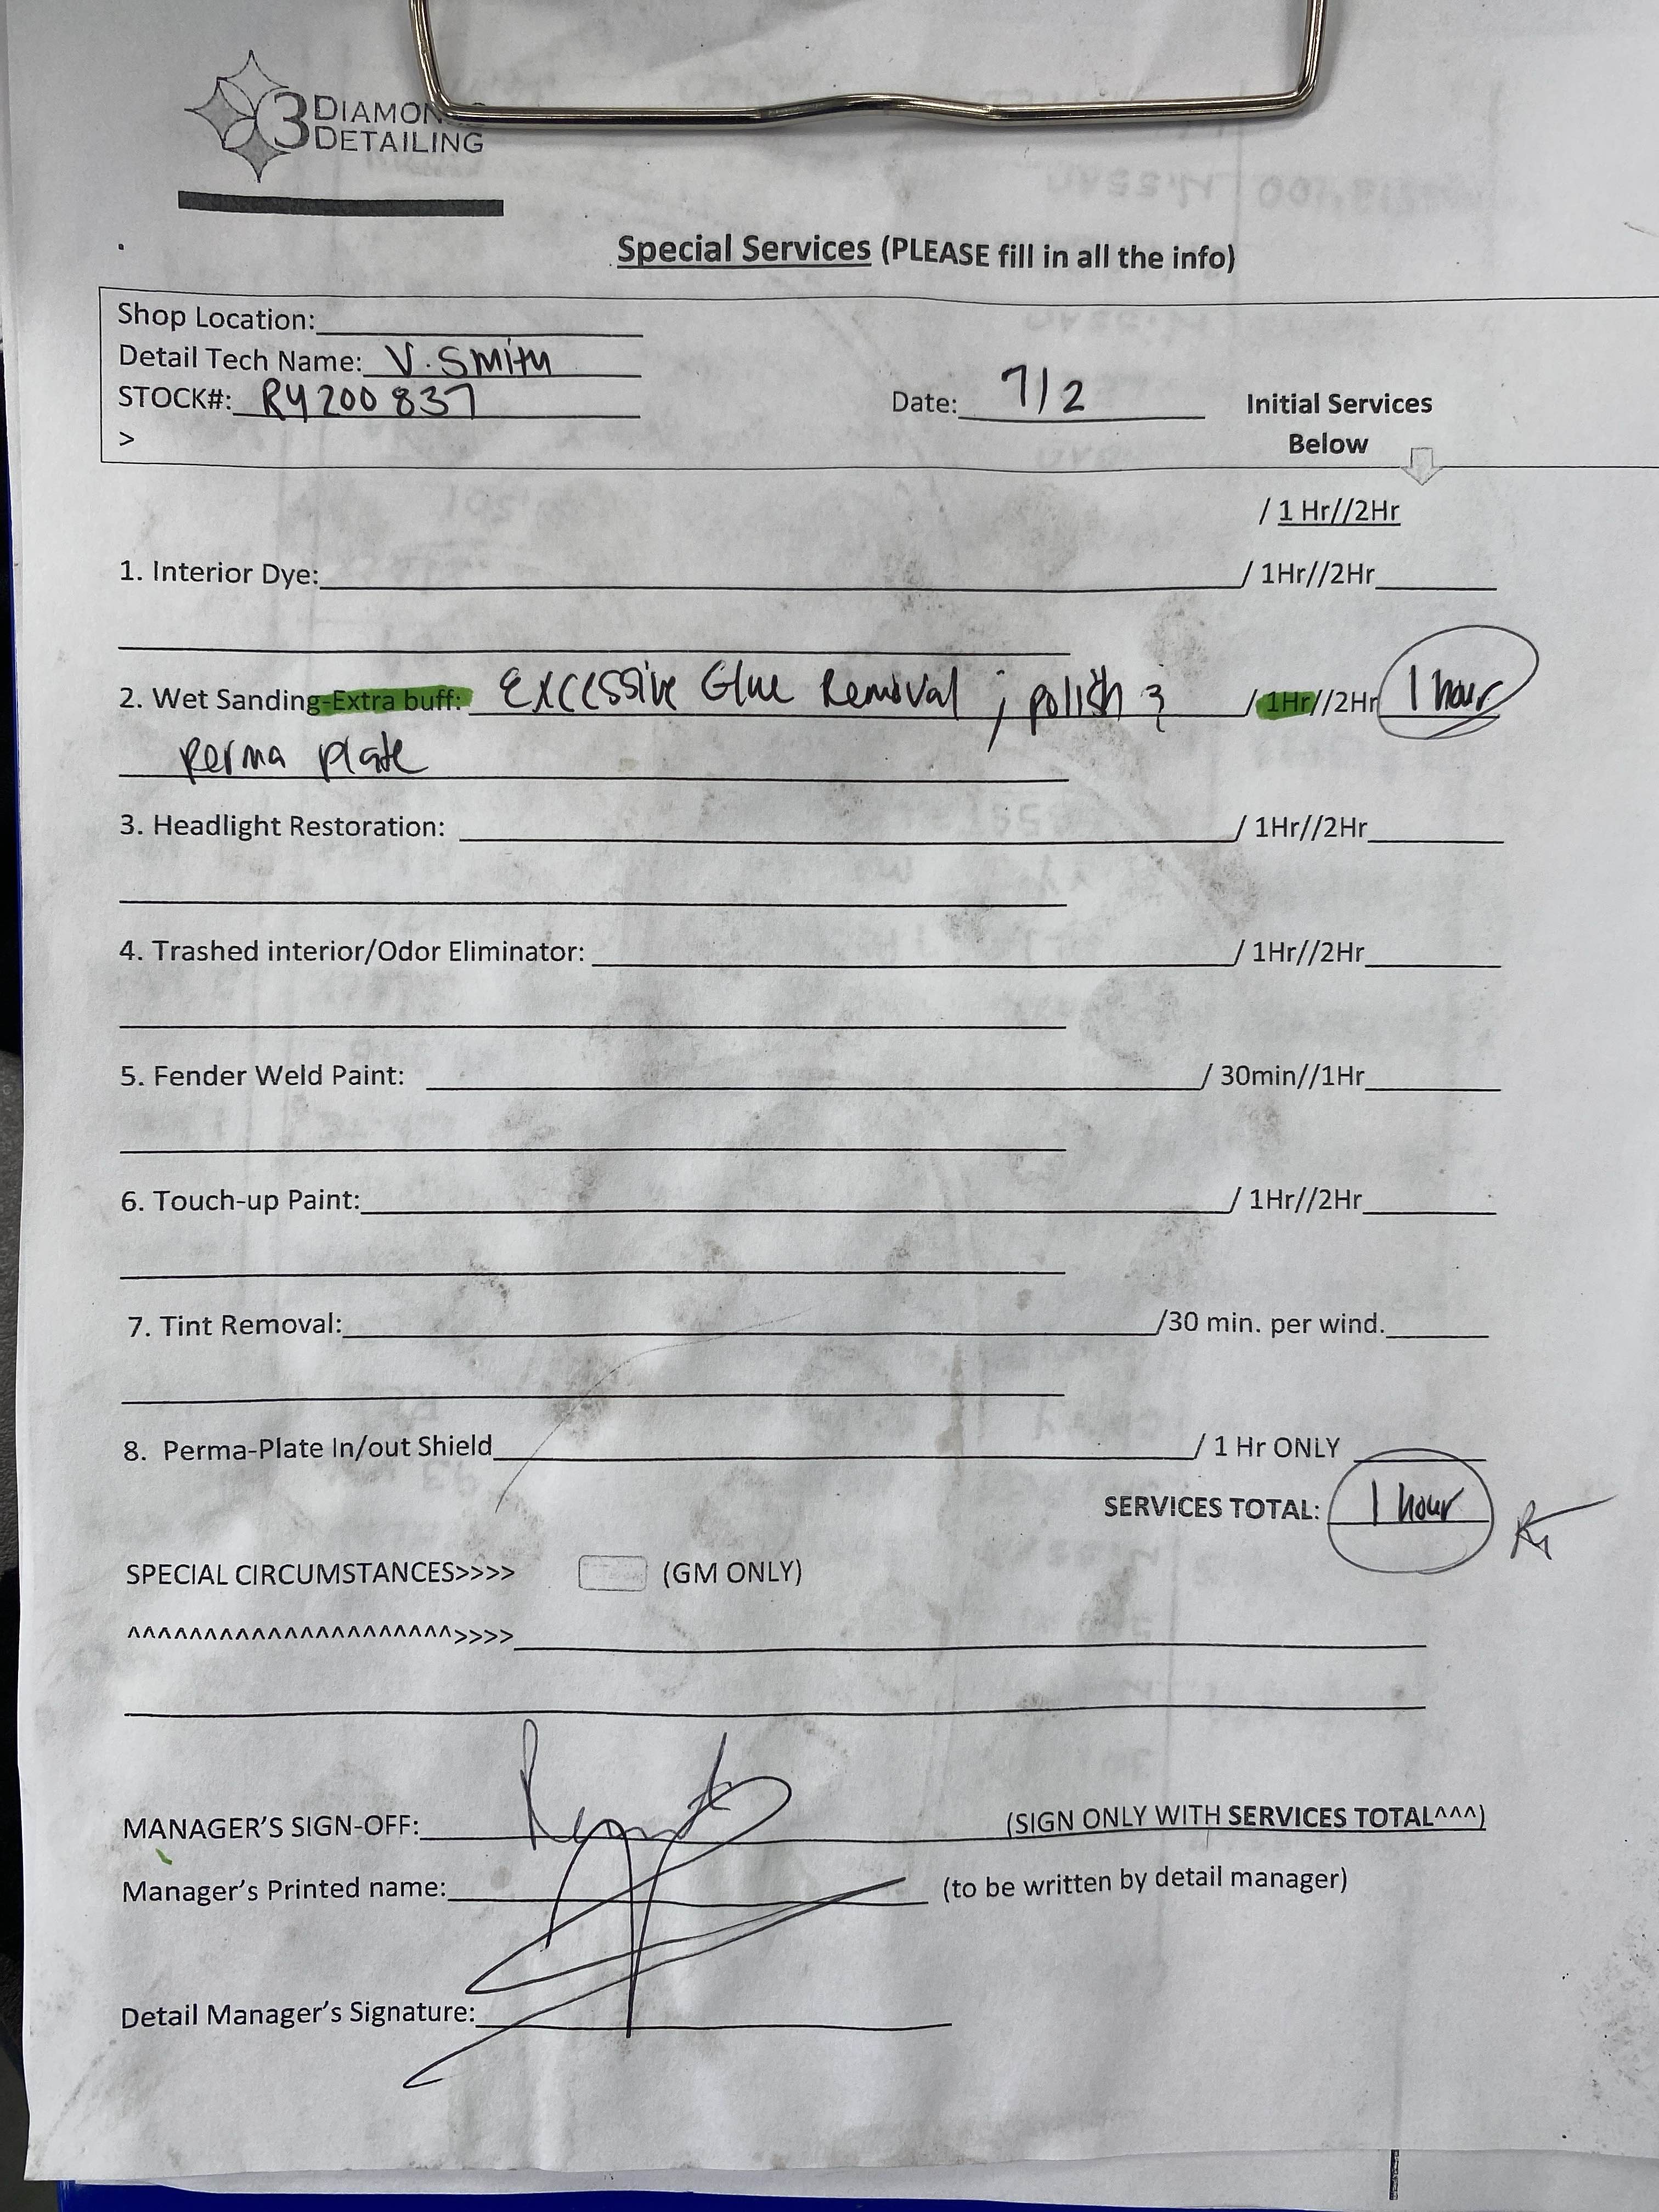 3 DIAMON
DETAILING
Special Services (PLEASE fill in all the info)
Shop Location:
Detail Tech Name: V. Smith
STOCK#: RY200837
Date: 7/2
Initial Services
Below
>
/ 1 Hr//2Hr
1. Interior Dye: / 1Hr//2Hr
2. Wet Sanding-Extra buff: Excessive Glue Removal ; polish & / 1Hr//2Hr 1 hour
Perma plate
3. Headlight Restoration: / 1Hr//2Hr
4. Trashed interior/Odor Eliminator: / 1Hr//2Hr
5. Fender Weld Paint: / 30min//1Hr
6. Touch-up Paint: / 1Hr//2Hr
7. Tint Removal: /30 min. per wind.
8. Perma-Plate In/out Shield / 1 Hr ONLY
SERVICES TOTAL: 1 hour
SPECIAL CIRCUMSTANCES>>>> (GM ONLY)
^^^^^^^^^^^^^^^^^^^^^>>>>
MANAGER'S SIGN-OFF: (SIGN ONLY WITH SERVICES TOTAL^^^)
Manager's Printed name: (to be written by detail manager)
Detail Manager's Signature: